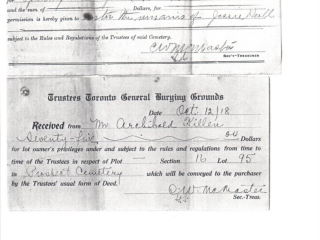 and the sum of Dollars, for
permission is hereby given to inter the remains of Jessie Neill
subject to the Rules and Regulations of the Trustees of said Cemetery.
Sec'y-Treasurer
Trustees Toronto General Burying Grounds
Date Oct 12/18
Received from Mr Archibald Killen
Seventy-five Dollars
for lot owner's privileges under and subject to the rules and regulations from time to
time of the Trustees in respect of Plot - Section 16 Lot 95
in Prospect Cemetery which will be conveyed to the purchaser
by the Trustees' usual form of Deed.
Sec.-Treas.